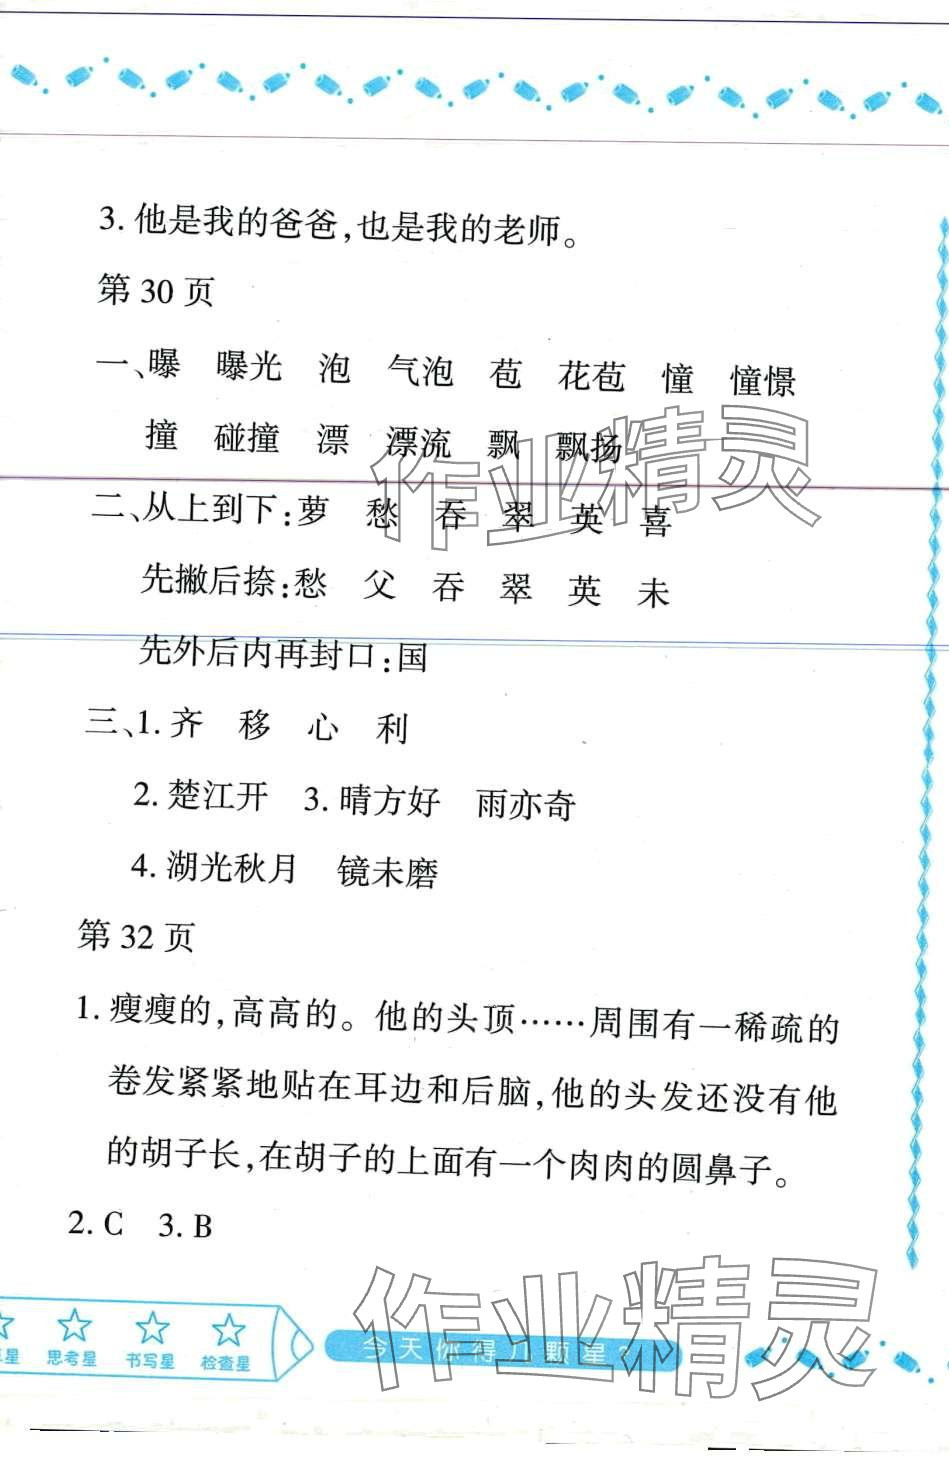 3. 他是我的爸爸,也是我的老师。
第 30 页
一、曝 曝光 泡 气泡 苞 花苞 憧 憧憬
撞 碰撞 漂 漂流 飘 飘扬
二、从上到下:萝 愁 吞 翠 英 喜
先撇后捺:愁 父 吞 翠 英 未
先外后内再封口:国
三、1. 齐 移 心 利
2. 楚江开 3. 晴方好 雨亦奇
4. 湖光秋月 镜未磨
第 32 页
1. 瘦瘦的,高高的。他的头顶……周围有一稀疏的
卷发紧紧地贴在耳边和后脑,他的头发还没有他
的胡子长,在胡子的上面有一个肉肉的圆鼻子。
2. C 3. B
星 思考星 书写星 检查星
今天你得几颗星?
作业精灵
作业精灵